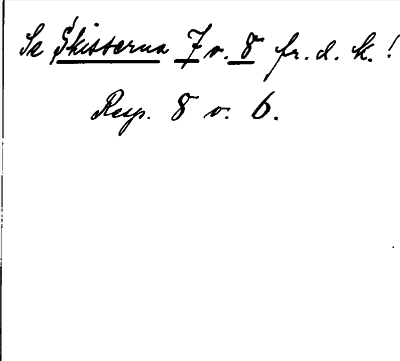 Se Skisserna 7 v. 8 fr. d. k.!
Resp. 8 v. 6.